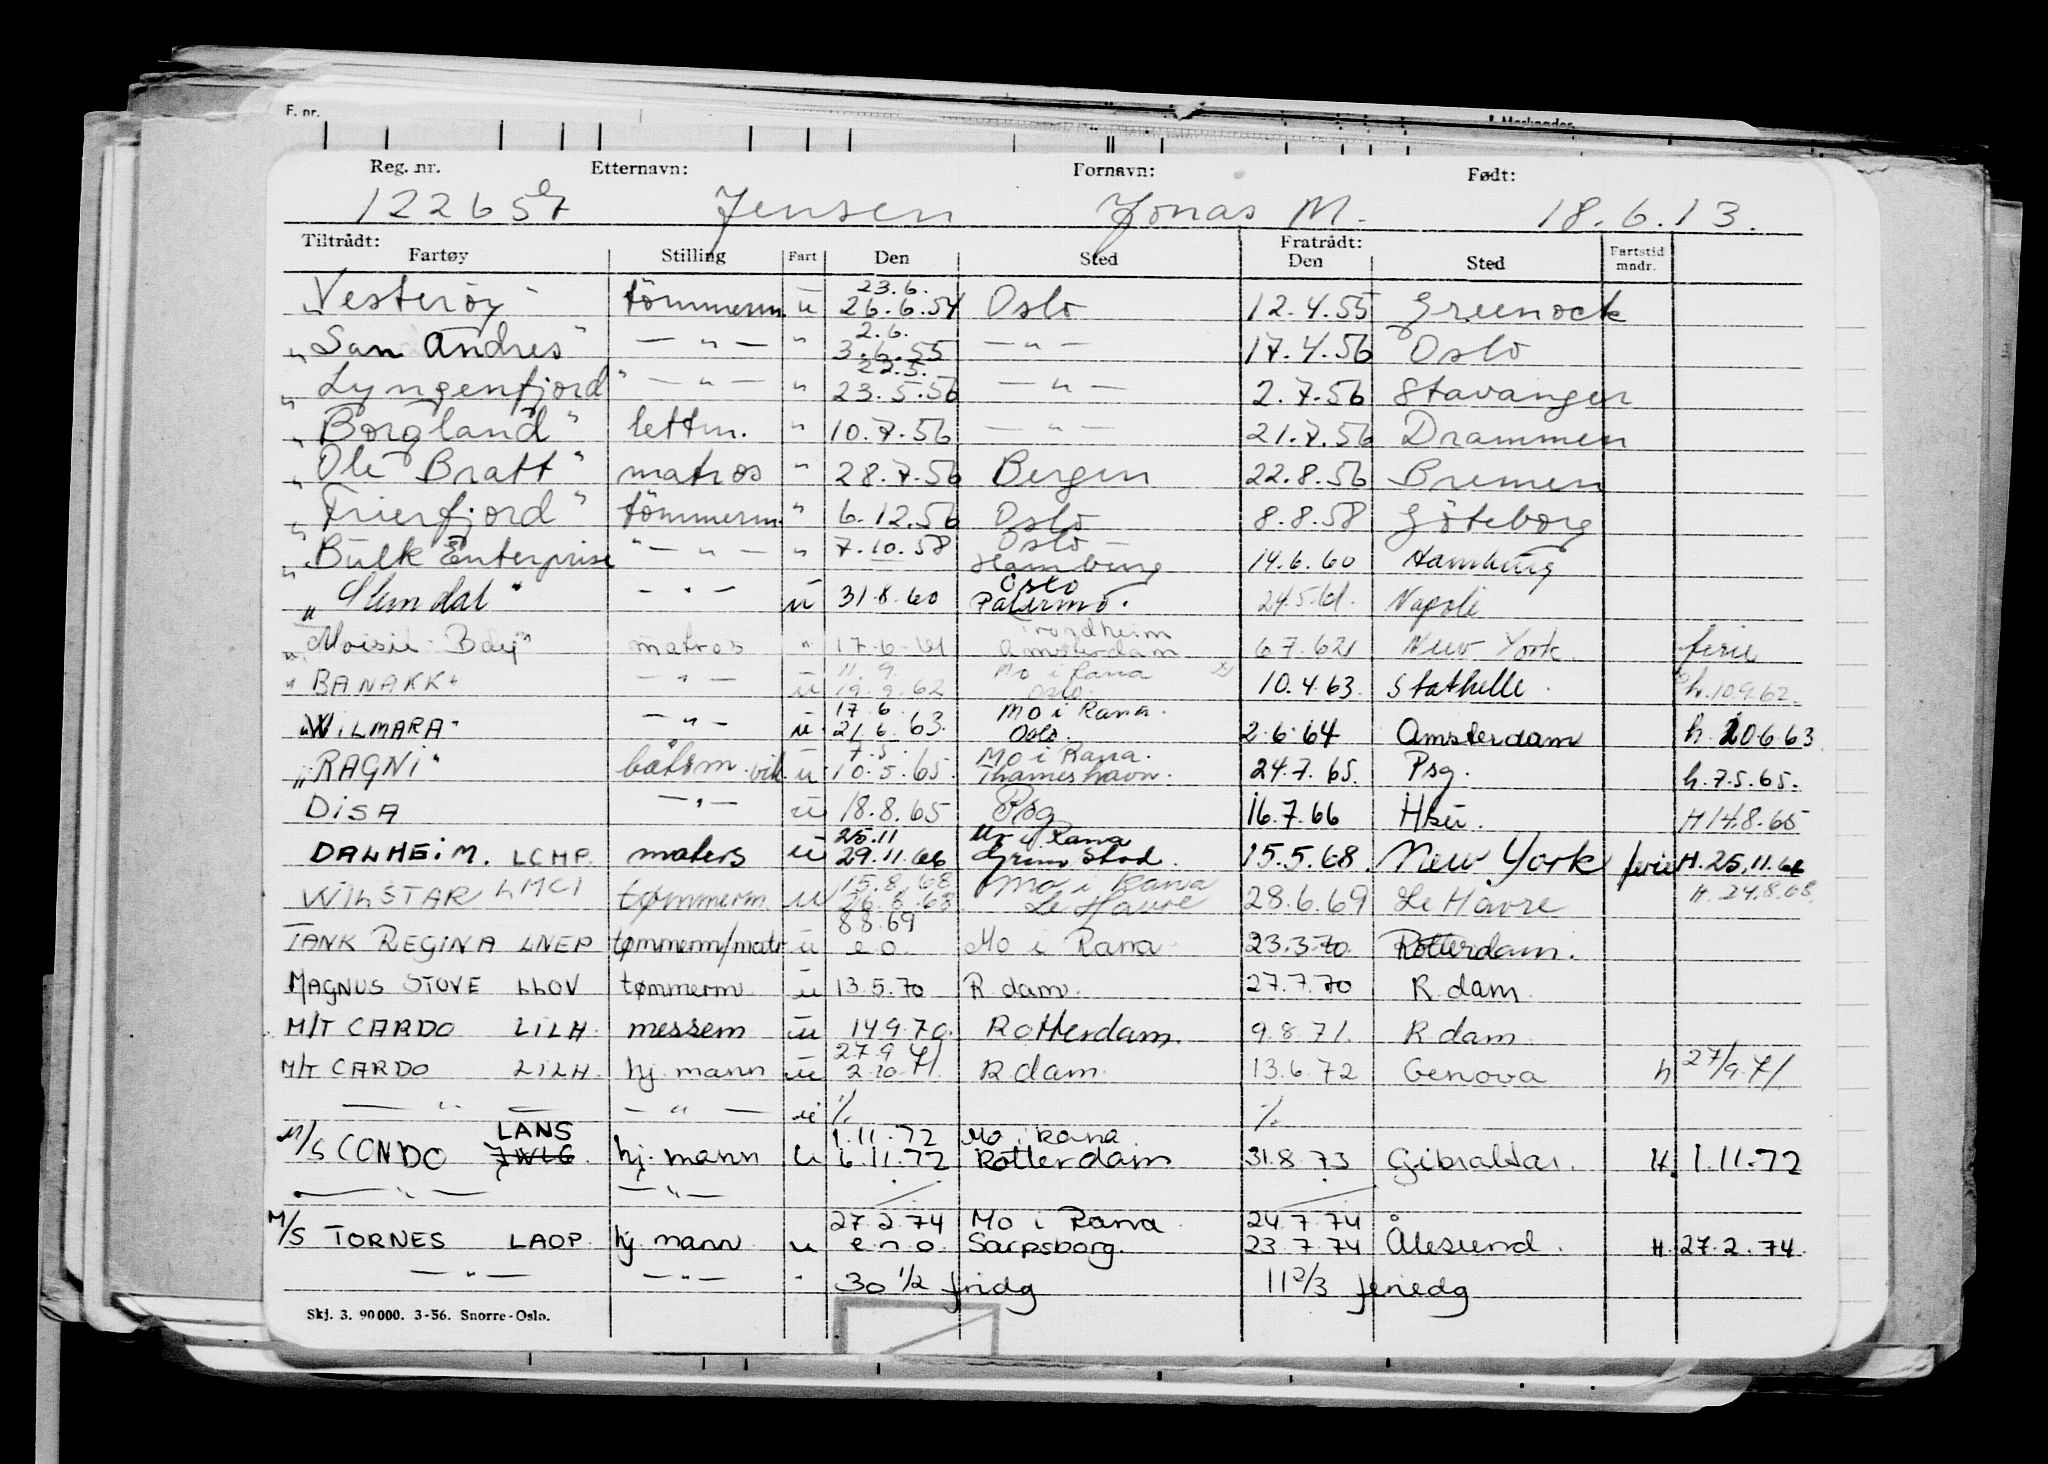 F. nr. Merknader
Reg. nr. Etternavn: Fornavn: Født:
1226567 Jensen Jonas M. 18.6.13.
Tiltrådt: Fratrådt:
Fartøy Stilling Fart Den Sted Den Sted Fartstid mndr.
23.6.
"Vesterøy" tömmerm. u 26.6.54 Oslo 12.4.55 Greenock
2.6.
"San Andres" — " — " 3.6.55 — " — 17.4.56 Oslo
22.5.
"Lyngenfjord" — " — " 23.5.56 — " — 2.7.56 Stavanger
"Borgland" lettm. " 10.7.56 — " — 21.7.56 Drammen
"Ole Bratt" matros " 28.7.56 Bergen 22.8.56 Bremen
"Frierfjord" tömmerm. " 6.12.56 Oslo 8.8.58 Göteborg
Oslo
"Bulk Enterprise" — " — " 7.10.58 Hamburg 14.6.60 Hamburg
Oslo
" " — " — u 31.8.60 Palermo. 24.5.61. Napoli
Trondheim
Bay" matros " 17.6.61 Amsterdam 6.7.62 New York ferie
11.9. Mo i Rana
"BANAKK" — " — u 19.9.62 Oslo. 10.4.63. Stathelle. h. 10.9.62.
17.6. Mo i Rana.
"WILMARA" — " — u. 21.6.63. Oslo. 2.6.64 Amsterdam h. 20.6.63.
7.5. Mo i Rana.
"RAGNI" båtsm. vik. u 10.5.65. Thameshavn. 24.7.65. Psg. h. 7.5.65.
DISA — " — u 18.8.65 Psg 16.7.66 H 14.8.65
25.11 Mo i Rana
DALHEIM. LCHP. matros u 29.11.66 Grimstad. 15.5.68. New York ferie H. 25.11.66
15.8.68 Mo i Rana
WILSTAR LMCI tømmerm. u 26.8.68 Le Havre 28.6.69 Le Havre H. 24.8.68.
8.8.69
TANK REGINA LNEP tømmerm/matr u e.o. Mo i Rana 23.3.70. Rotterdam.
MAGNUS STOVE LLOV tømmerm. u 13.5.70 R.dam. 27.7.70 R.dam.
M/T CARDO LILH. messem u 14.9.70. Rotterdam. 9.8.71. R.dam.
27.9
M/T CARDO LILH. hj.mann u 2.10.71. R.dam. 13.6.72 Genova h 27/9.71.
— " — — " — u ./. ./.
LANS 1.11.72 Mo i Rana.
M/S CONDO hj.mann u 6.11.72 Rotterdam 31.8.73 Gibraltar. H. 1.11.72
— " — — " —
27.2.74 Mo i Rana. 24.7.74
M/S TORNES LAOP. hj.mann u e.n.o. Sarpsborg. 23.7.74 Ålesund. H. 27.2.74.
— " — — " — " 30 1/2 fridg 11 2/3 feriedg
Skj. 3. 90 000. 3-56. Snorre-Oslo.